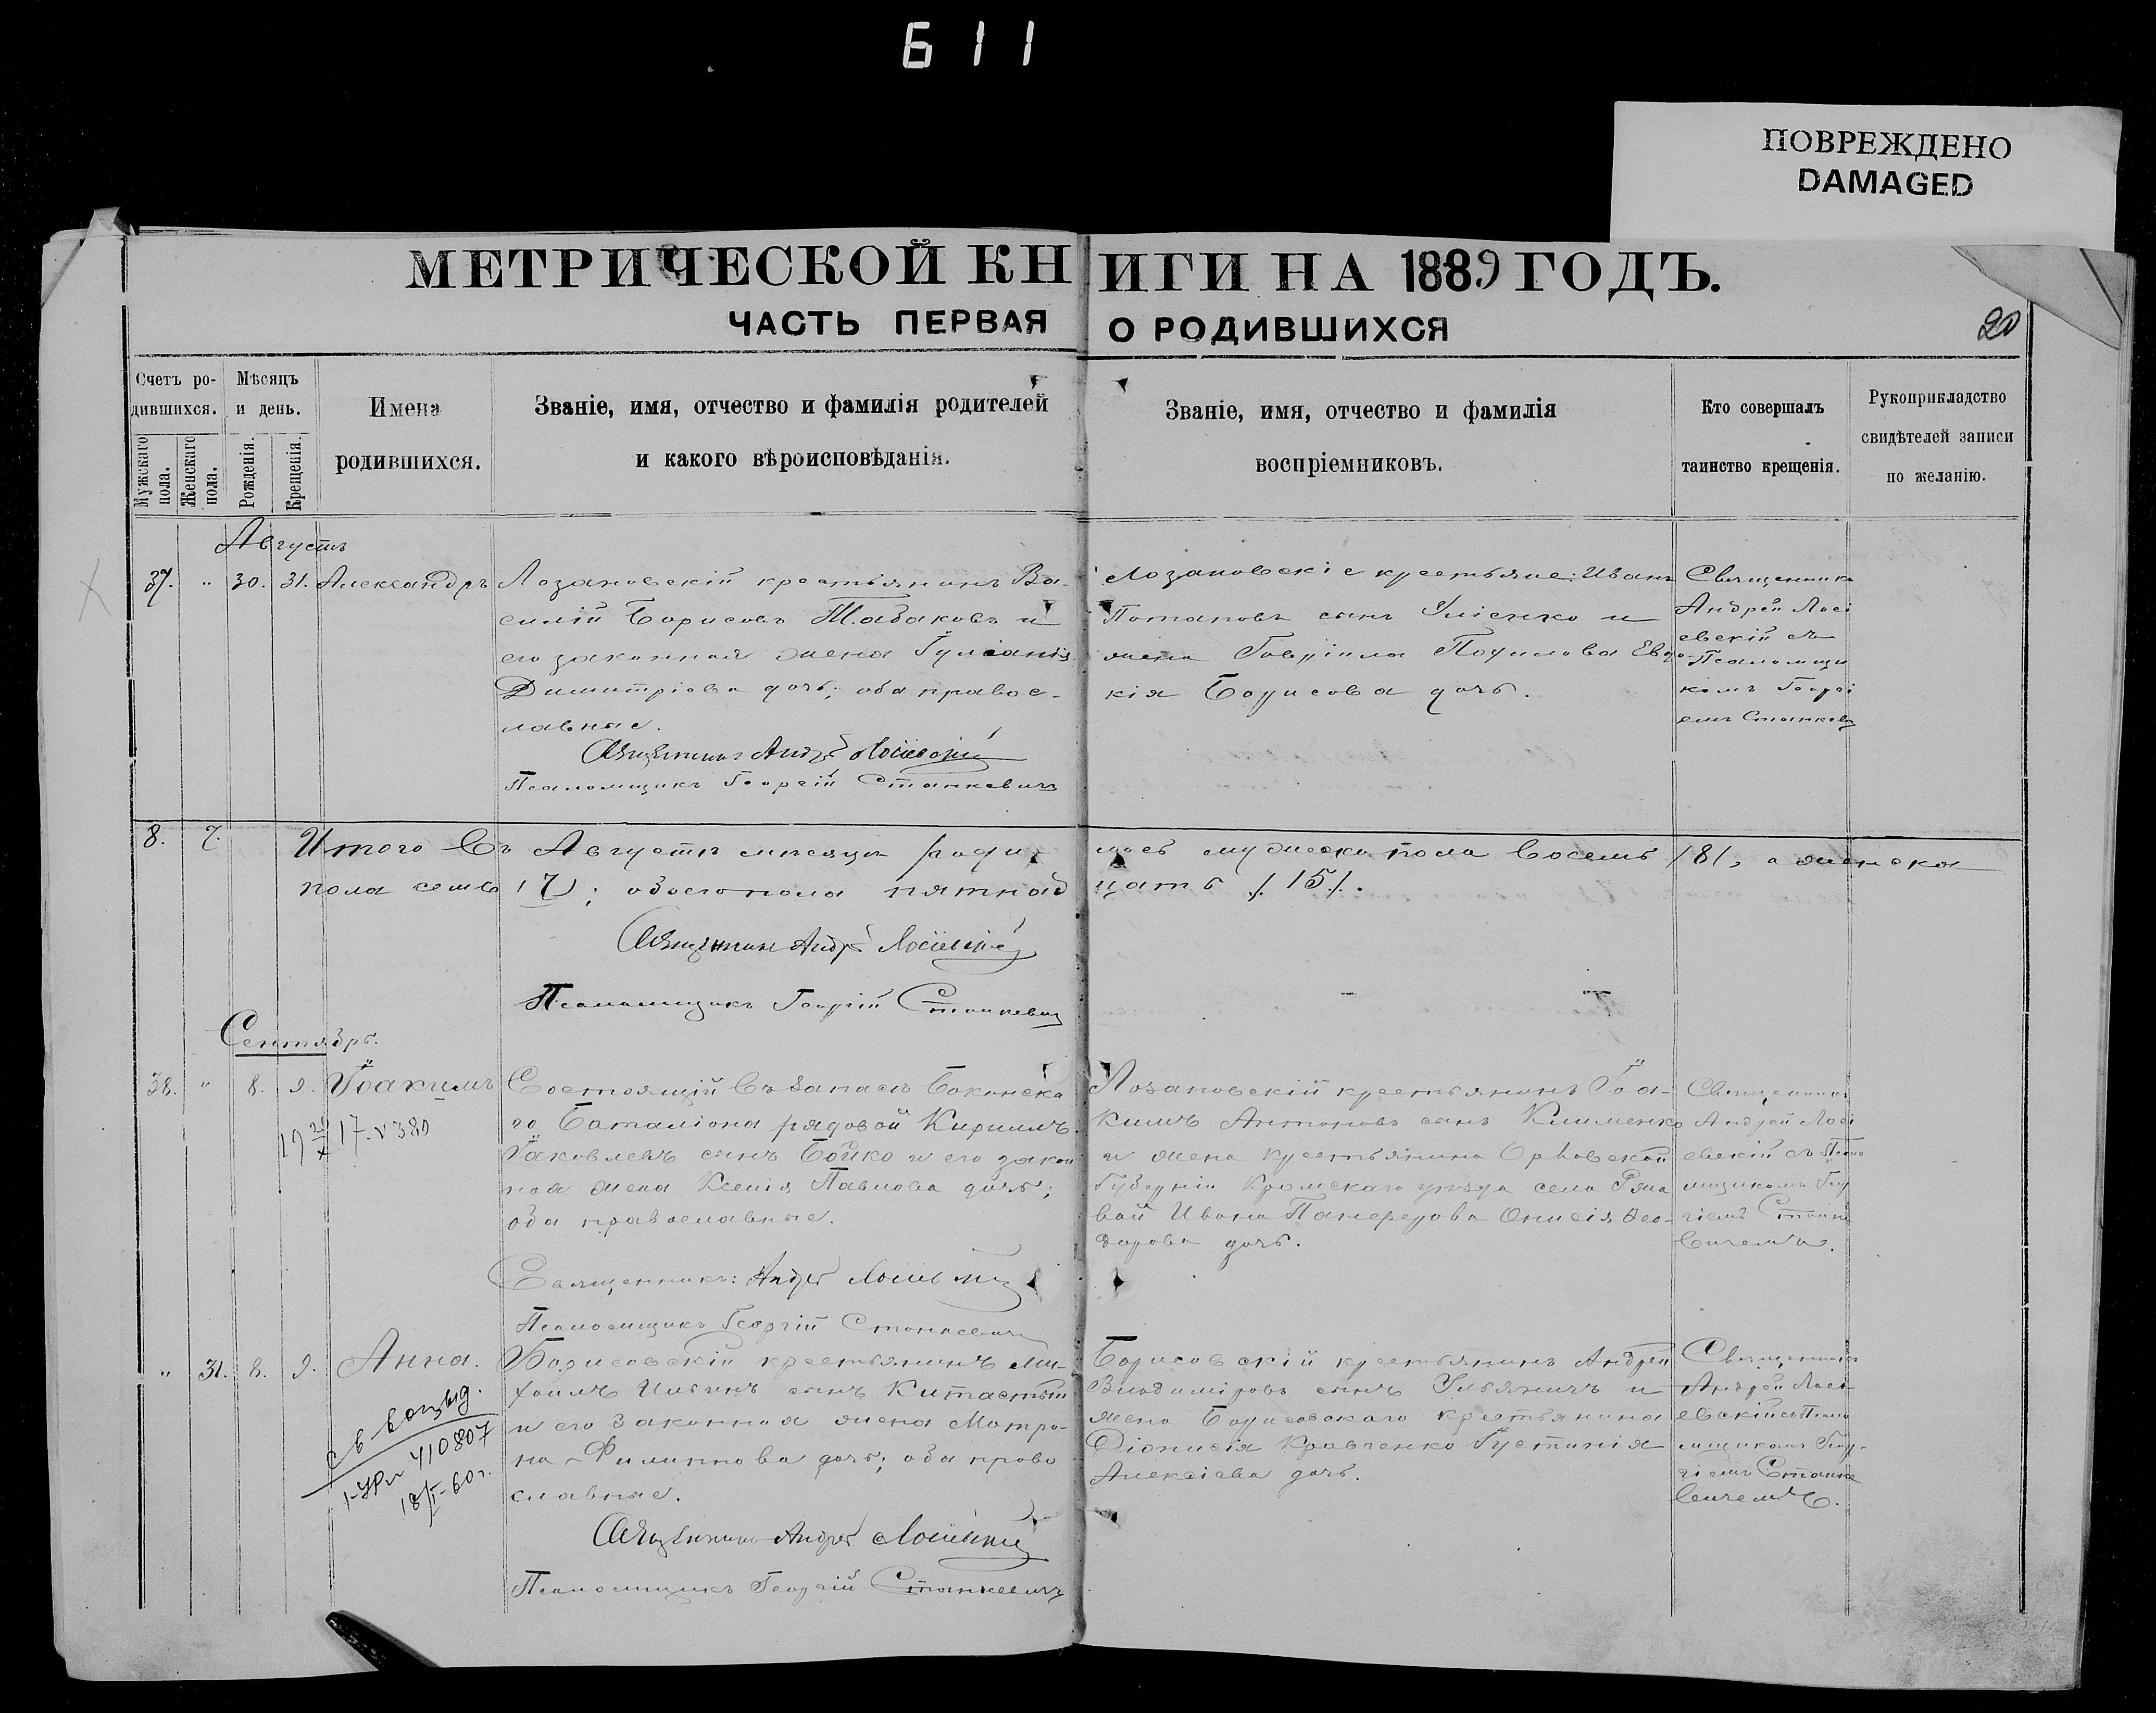 611
ПОВРЕЖДЕНО
DAMAGED
МЕТРИЧЕСКОЙ КНИГИ НА 1889 ГОДЪ.
ЧАСТЬ ПЕРВАЯ О РОДИВШИХСЯ
20
Счетъ ро-
дившихся.
Мужскаго пола.
Женскаго пола.
Мѣсяцъ
и день.
Рожденія.
Крещенія.
Имена
родившихся.
Званіе, имя, отчество и фамилія родителей
и какого вѣроисповѣданія.
Званіе, имя, отчество и фамилія
воспріемниковъ.
Кто совершалъ
таинство крещенія.
Рукоприкладство
свидѣтелей записи
по желанію.
Августъ
37. " 30. 31. Александръ
Лозановскій крестьянинъ Ва-
силій Борисовъ Табаковъ и
его законная жена
Димитріева дочь; оба правос-
лавные.
Священникъ Андрей Лосіевскій
Псаломщикъ Георгій Станкевичъ
Лозановскіе крестьяне: Иванъ
Потаповъ сынъ и
жена Гавріила Евдо-
кія Борисова дочь.
Священникъ
Андрей Лосі
евскій съ
Псаломщи
комъ Георгі
емъ
8. 7.
Итого въ Августѣ мѣсяцѣ роди лось мужеска пола восемь /8/, а женска
пола семь /7/; обоего пола пятнад цать /15/.
Священникъ Андрей Лосіевскій
Псаломщикъ Георгій Станкевичъ
Сентябрь.
38. " 8. 9. Іоакимъ
Состоящій въ Запасѣ
го Баталіона рядовой Кириллъ
Іаковлевъ сынъ Бойко и его закон
ная жена Ксенія Павлова дочь;
оба православные.
Священникъ: Андрей Лосіевскій
Псаломщикъ Георгій Станкевичъ
Лозановскій крестьянинъ Іоа-
кимъ Антоновъ сынъ Клименко
и жена крестьянина Орловской
Губерніи Кромскаго уѣзда села
Ивана Онисія Ѳео-
дорова дочь.
Священникъ
Андрей Лосі
евскій съ Псало
мщикомъ Геор
гіемъ Станке
вичемъ.
" 31. 8. 9. Анна.
410807
18/I-60г.
Борисовскій крестьянинъ Ми-
хаилъ сынъ Китастый
и его законная жена Матро-
на Филиппова дочь; оба право
славные.
Священникъ Андрей Лосіевскій
Псаломщикъ Георгій Станкевичъ
Борисовскій крестьянинъ Андрей
Владиміровъ сынъ Ульяничъ и
жена Борисовскаго крестьянина
Діонисія Кравченко Іустинія
Алексіева дочь.
Священникъ
Андрей Лосі-
евскій съ Псало
мщикомъ Геор-
гіемъ Станке
вичемъ.